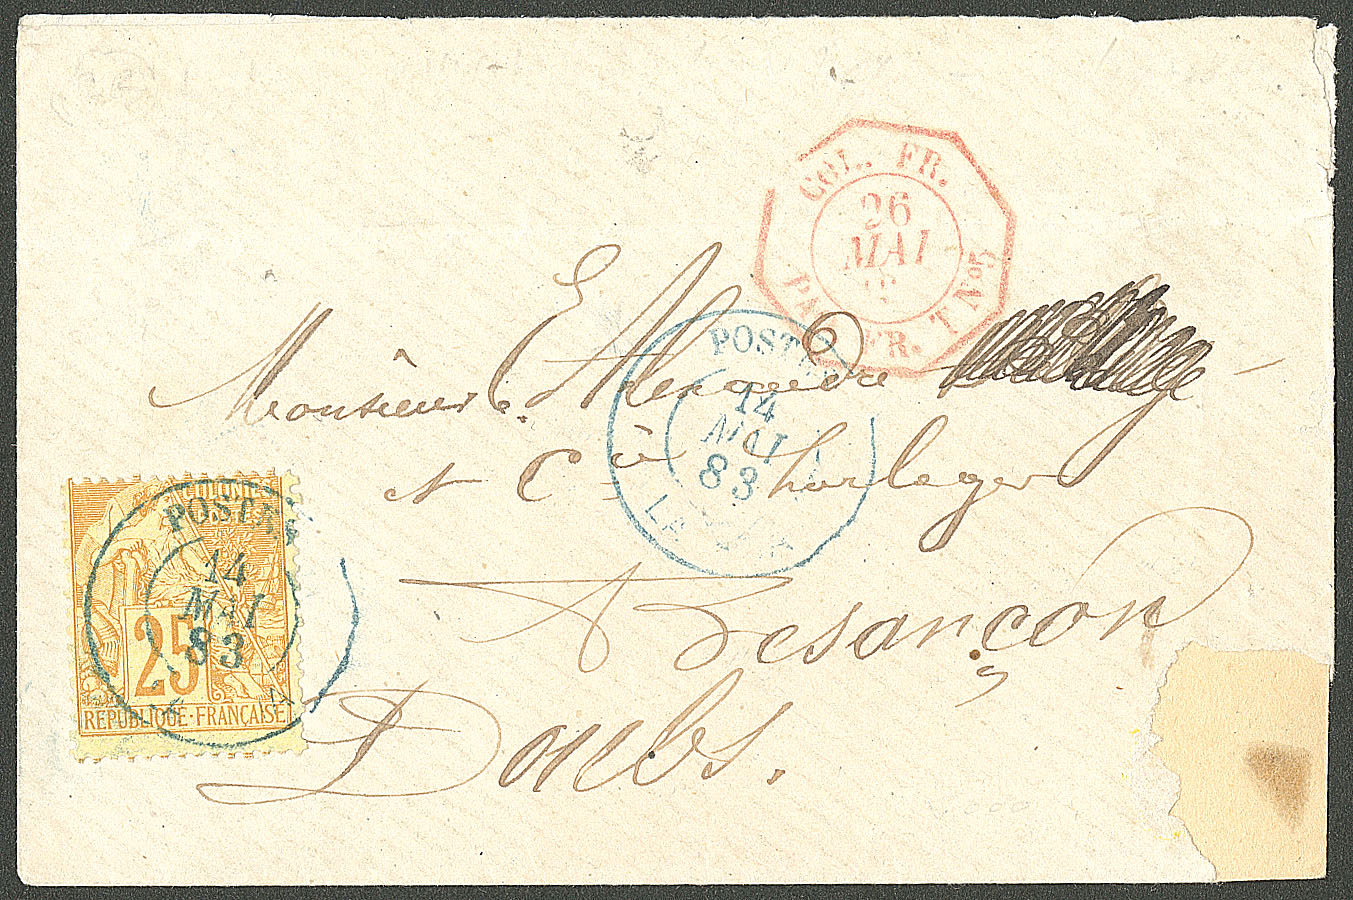 COL. FR.
26
MAI
PAQ. FR. T Nº 5
Monsieur E. Alexandre
et Cie horloger
A Besançon
Doubs.
POSTES
14
MAI
83
COLONIES
POSTES
14
MAI
83
25
REPUBLIQUE·FRANÇAISE